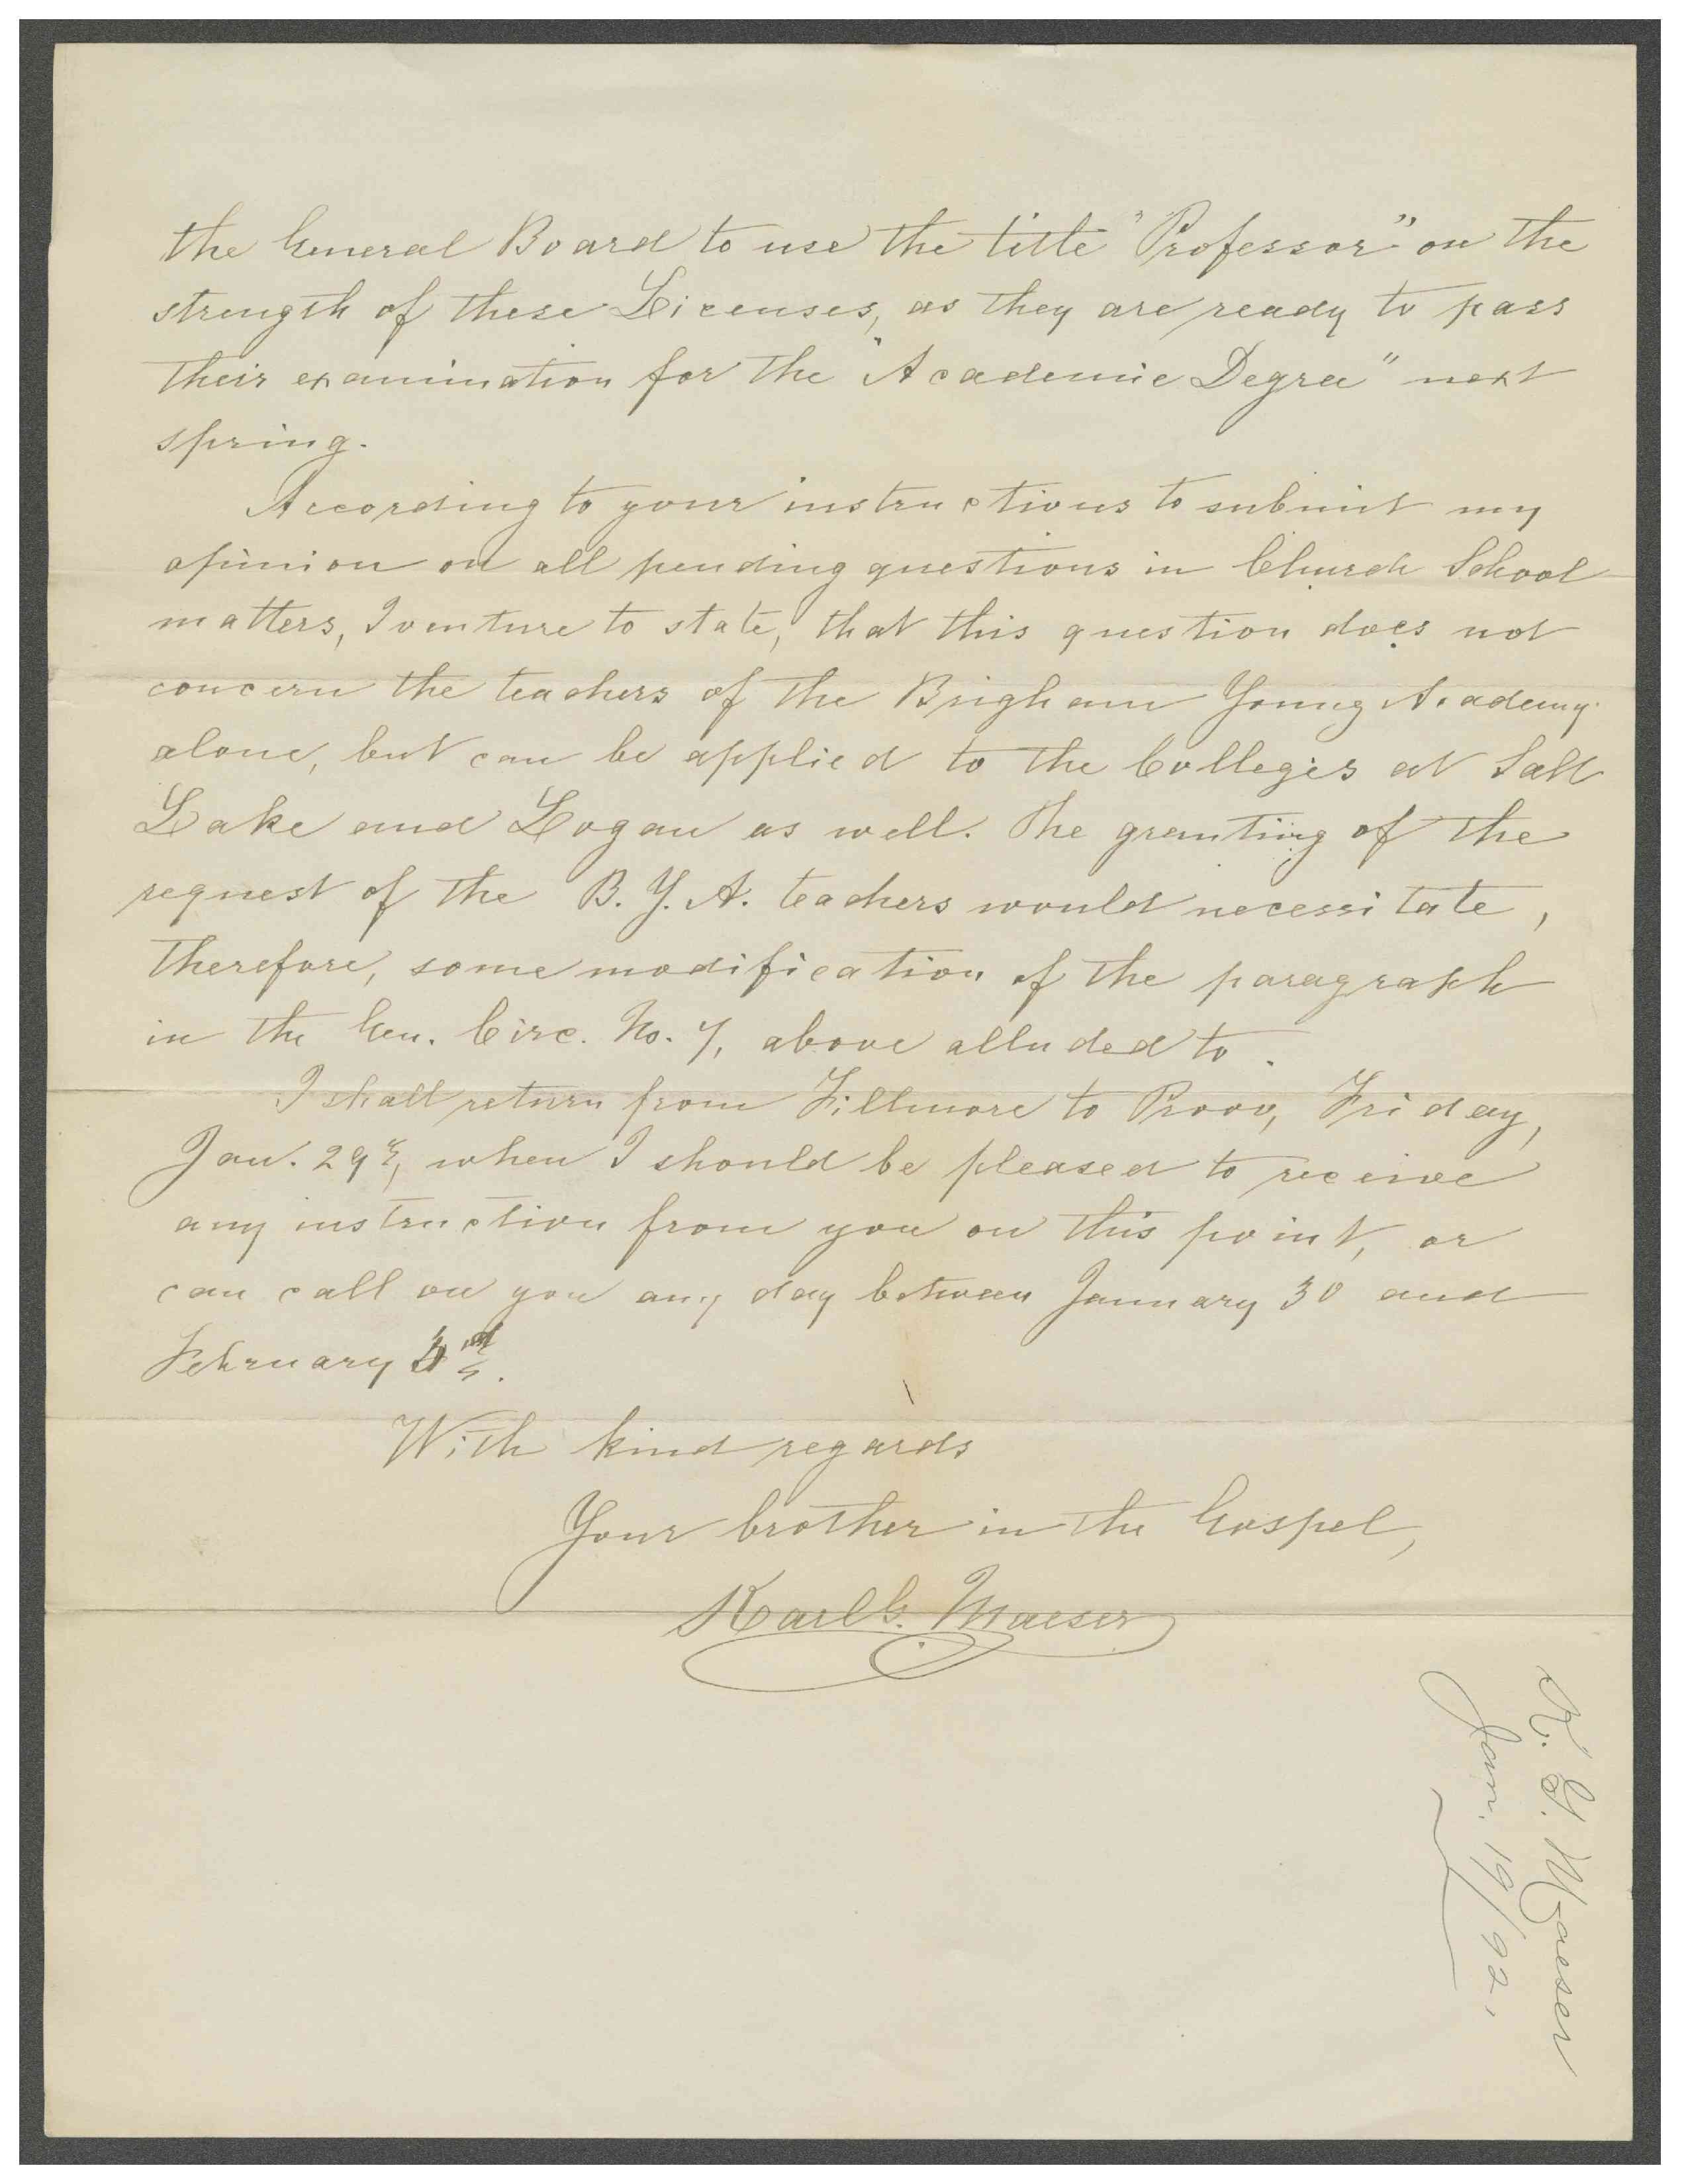 the General Board to use the title "Professor" on the
strength of these Licenses, as they are ready to pass
their examination for the "Academic Degree" next
spring.
According to your instructions to submit my
opinion on all pending questions in Church School
matters, I venture to state, that this question does not
concern the teachers of the Brigham Young Academy
alone, but can be applied to the Colleges at Salt
Lake and Logan as well. The granting of the
request of the B. Y. A. teachers would necessitate,
therefore, some modification of the paragraph
in the Gen. Circ. No. 7, above alluded to.
I shall return from Fillmore to Provo, Friday,
Jan. 29th, when I should be pleased to receive
any instruction from you on this point, or
can call on you any day between January 30 and
February 3rd.
With kind regards
Your brother in the Gospel,
Karl G. Maeser
K. G. Maeser
Jan. 19/92.